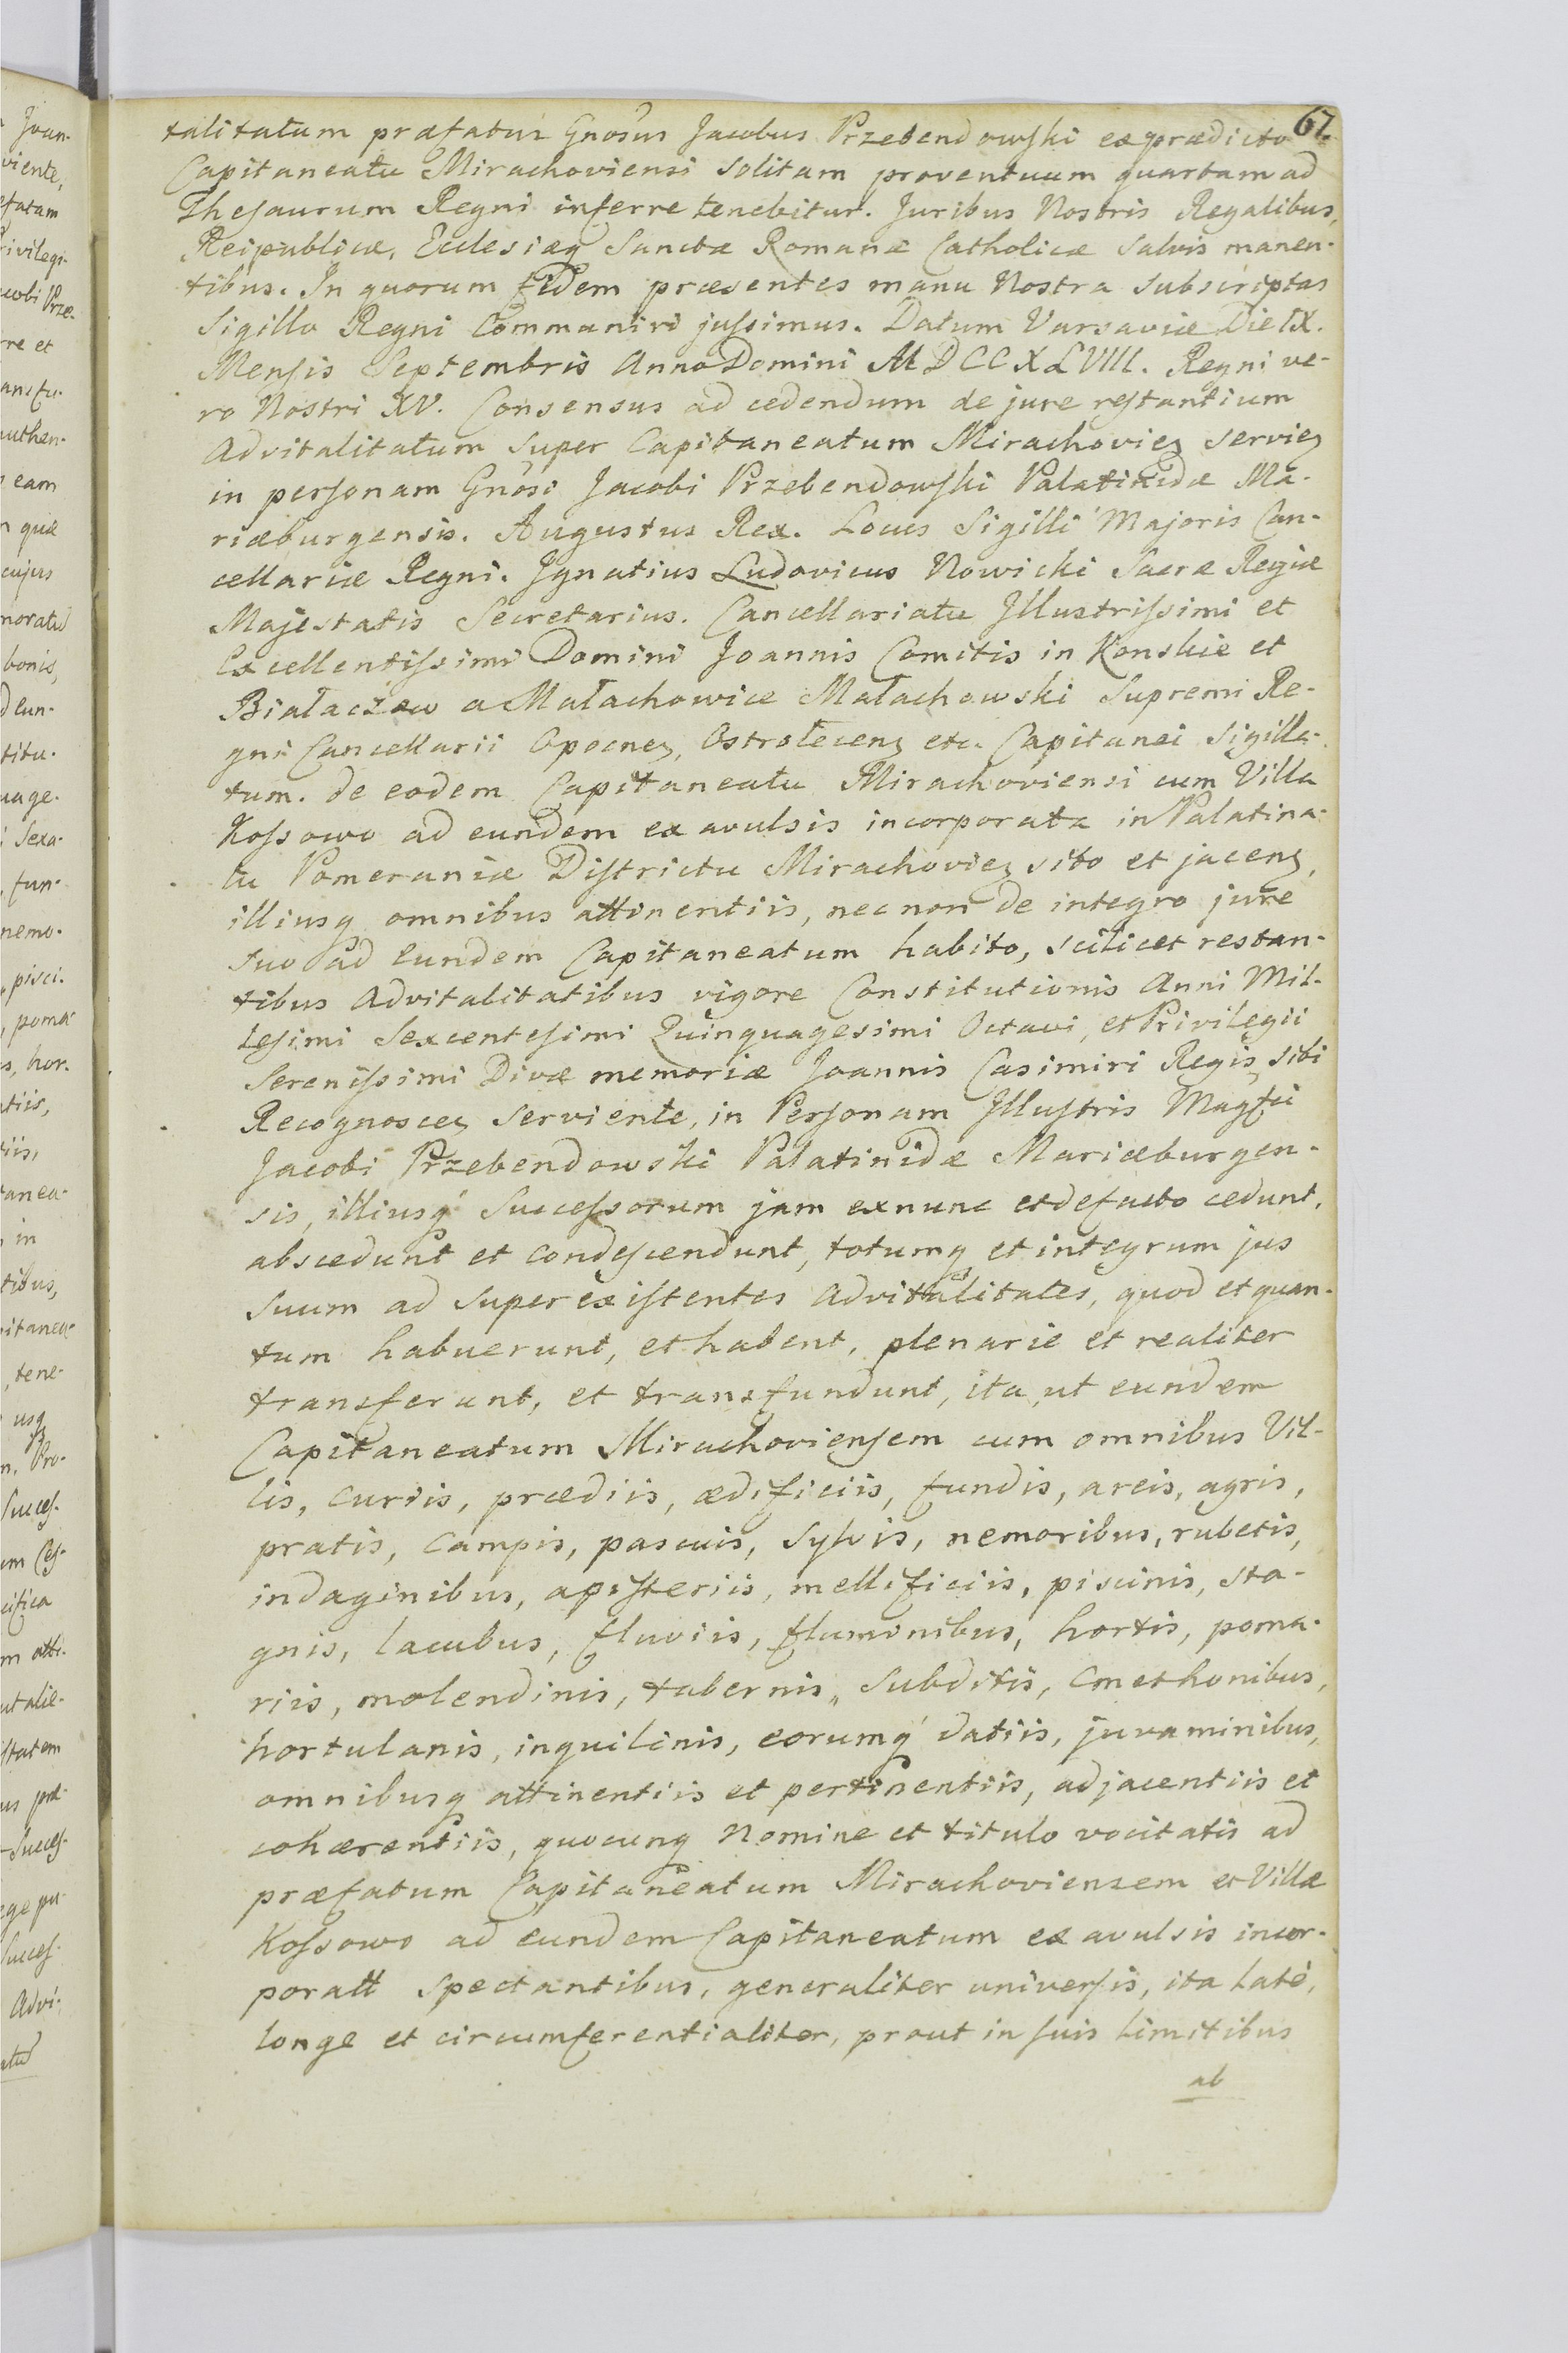 67.
talitatum præfatus Gnosus Jacobus Przebendowski ex prædicto
Capitaneatu Mirachoviensi solitam proventuum quartam ad
Thesaurum Regni inferre tenebitur. Juribus Nostris Regalibus,
Reipublicæ, Ecclesiæq Sanctæ Romanæ Catholicæ salvis manen-
tibus. In quorum fidem præsentes manu Nostra subscriptas
Sigillo Regni Communiri jussimus. Datum Varsaviæ Die IX.
Mensis Septembris Anno Domini MDCCXLVIII. Regni ve-
ro Nostri XV. Consensus ad cedendum de jure restantium
Advitalitatum super Capitaneatum Mirachovieȝ servieȝ
in personam Gnosi Jacobi Przebendowski Palatinidæ Ma-
riæburgensis. Augustus Rex. Locus Sigilli Majoris Can-
cellariæ Regni. Ignatius Ludovicus Nowicki Sacræ Regiæ
Majestatis Secretarius. Cancellariatu Illustrissimi et
Excellentissimi Domini Joannis Comitis in Konskie et
Białaczew a Małachowice Małachowski Supremi Re-
gni Cancellarii Opocneȝ, Ostrołecenȝ etc. Capitanei sigilla-
tum. de eodem Capitaneatu Mirachoviensi cum Villa
Kossowo ad eundem ex avulsis incorporata in Palatina-
tu Pomeraniæ Districtu Mirachovieȝ sito et jacenȝ,
illiusq omnibus attinentiis, nec non de integro jure
suo ad eundem Capitaneatum habito, scilicet restan-
tibus Advitalitatibus vigore Constitutionis Anni Mil-
lesimi Sexcentesimi Quinquagesimi Octavi, et Privilegii
Serenissimi Divæ memoriæ Joannis Casimiri Regis, sibi
Recognosceȝ serviente, in Personam Illustris Magfci
Jacobi Przebendowski Palatinidæ Mariæburgen-
sis, illiusq Successorum jam exnunc et de facto cedunt,
abscedunt et condescendunt, totumq et integrum jus
suum ad superexistentes Advitalitates, quod et quan-
tum habuerunt, et habent, plenarie et realiter
transferunt, et transfundunt, ita, ut eundem
Capitaneatum Mirachoviensem cum omnibus Vil-
lis, curiis, prædiis, ædificiis, fundis, areis, agris,
pratis, campis, pascuis, sylvis, nemoribus, rubetis,
indaginibus, apisteriis, mellificiis, piscinis, sta-
gnis, lacubus, fluviis, fluminibus, hortis, poma-
riis, molendinis, tabernis, subditis, Cmethonibus,
hortulanis, inquilinis, eorumq datiis, juvaminibus,
omnibusq attinentiis et pertinentiis, adjacentiis et
cohærentiis, quocunq Nomine et titulo vocitatis ad
præfatum Capitaneatum Mirachoviensem et Villæ
Kossowo ad eundem Capitaneatum ex avulsis incor-
poratt spectantibus, generaliter universis, ita latè,
longe et circumferentialiter, prout in suis limitibus
ab